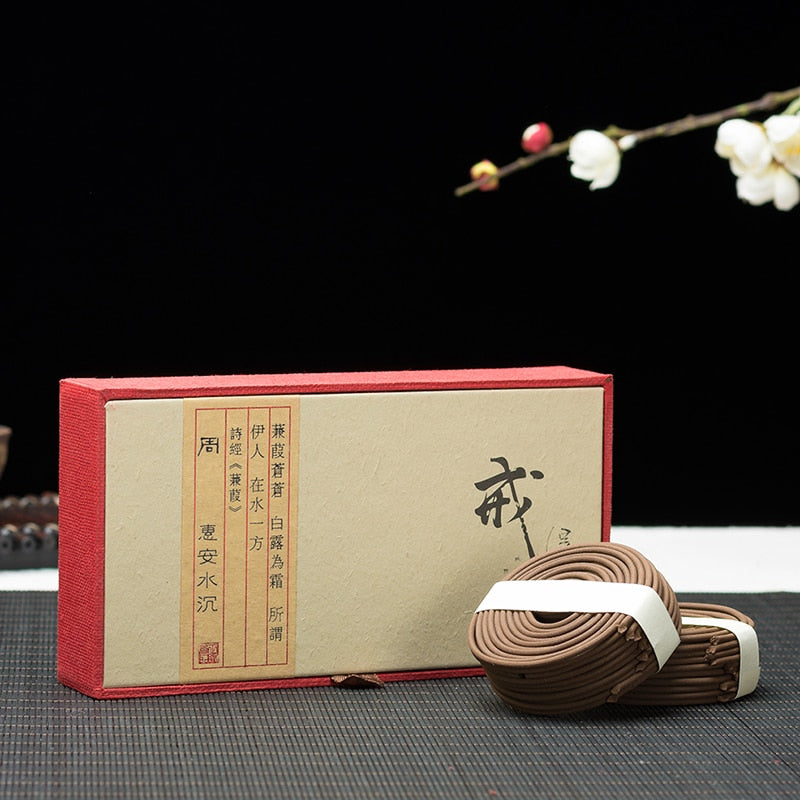 蒹葭蒼蒼 白露為霜 所謂
伊人 在水一方
詩經《蒹葭》
周 惠安水沉
戒